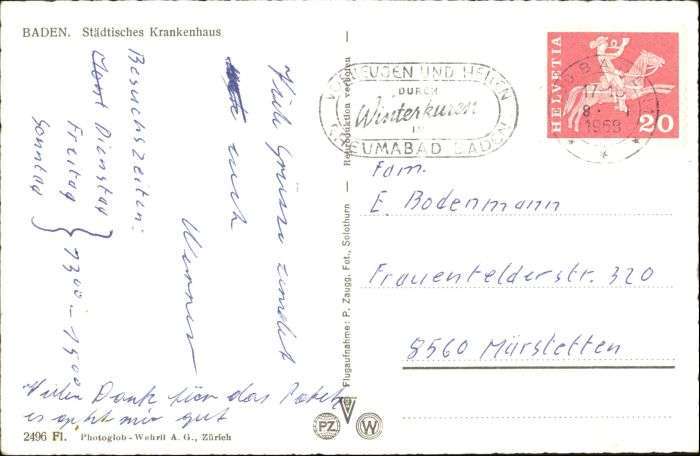 BADEN. Städtisches Krankenhaus
Viele Grüsse sendet
euch
Werner
Besuchszeiten:
Dienstag
Freitag
Sonntag
1300 - 1500
Vielen Dank für das Paket
es geht mir gut
2496 Fl. Photoglob - Wehrli A. G., Zürich
Reproduktion verboten
Flugaufnahme: P. Zaugg, Fot., Solothurn
PZ
W
VORBEUGEN UND HEILEN
DURCH
Winterkuren
IM
RHEUMABAD BADEN
HELVETIA
20
1968
Fam.
E. Bodenmann
Frauenfelderstr. 320
8560 Märstetten